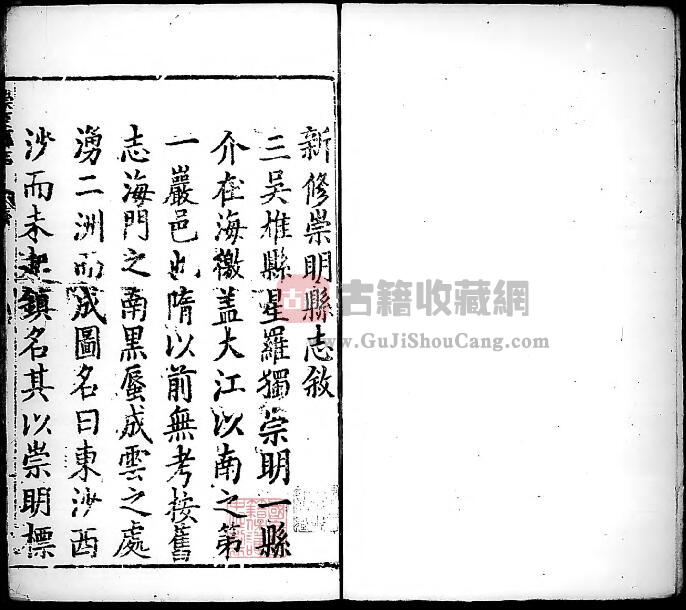 新修崇明縣志敘
三吳雄縣星羅獨崇明一縣
介在海徼蓋大江以南之第
一巖邑也隋以前無考按舊
志海門之南黑蜃成雲之處
湧二洲而成圖名曰東沙西
沙而未起鎮名其以崇明標
古籍收藏網
www.GuJiShouCang.com